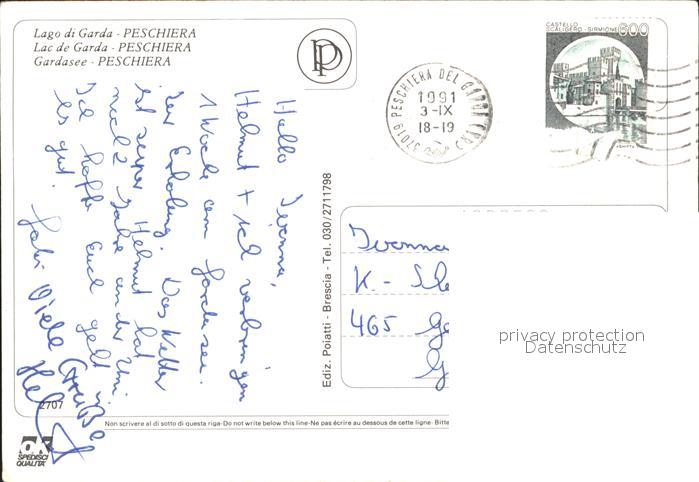 Lago di Garda - PESCHIERA
Lac de Garda - PESCHIERA
Gardasee - PESCHIERA
CASTELLO
SCALIGERO - SIRMIONE
600
37019 PESCHIERA DEL GARDA
1991
3-IX
18-19
Hallo Ivonna,
Helmut + ich verbringen
1 Woche am Gardasee.
zur Erholung. Das Wetter
ist super. Helmut hat
noch 2 Jahre an der Uni.
Ich hoffe Euch geht
es gut.
Viele Grüße
Gabi
Ediz. Poiatti - Brescia - Tel. 030/2711798
Ivonna
K.-
465 Ge
G
privacy protection
Datenschutz
2707
Non scrivere al di sotto di questa riga-Do not write below this line-Ne pas écrire au dessous de cette ligne-Bitte
OK
SPEDISCI
QUALITA'